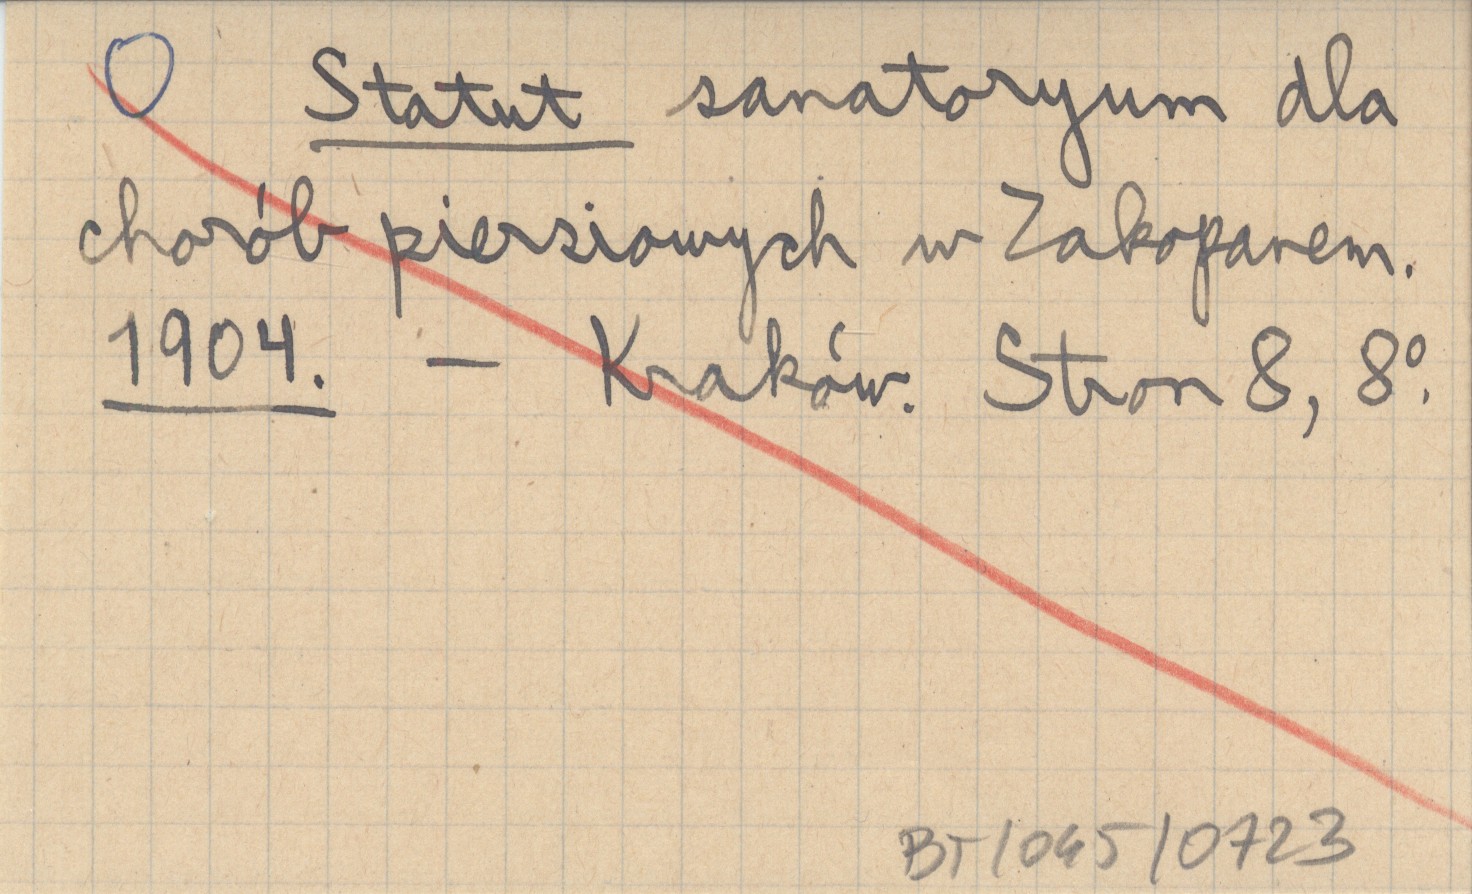 Statut sanatoryum dla
chorób piersiowych w Zakopanem.
1904. — Kraków. Stron 8, 8º.
BT/045/0723